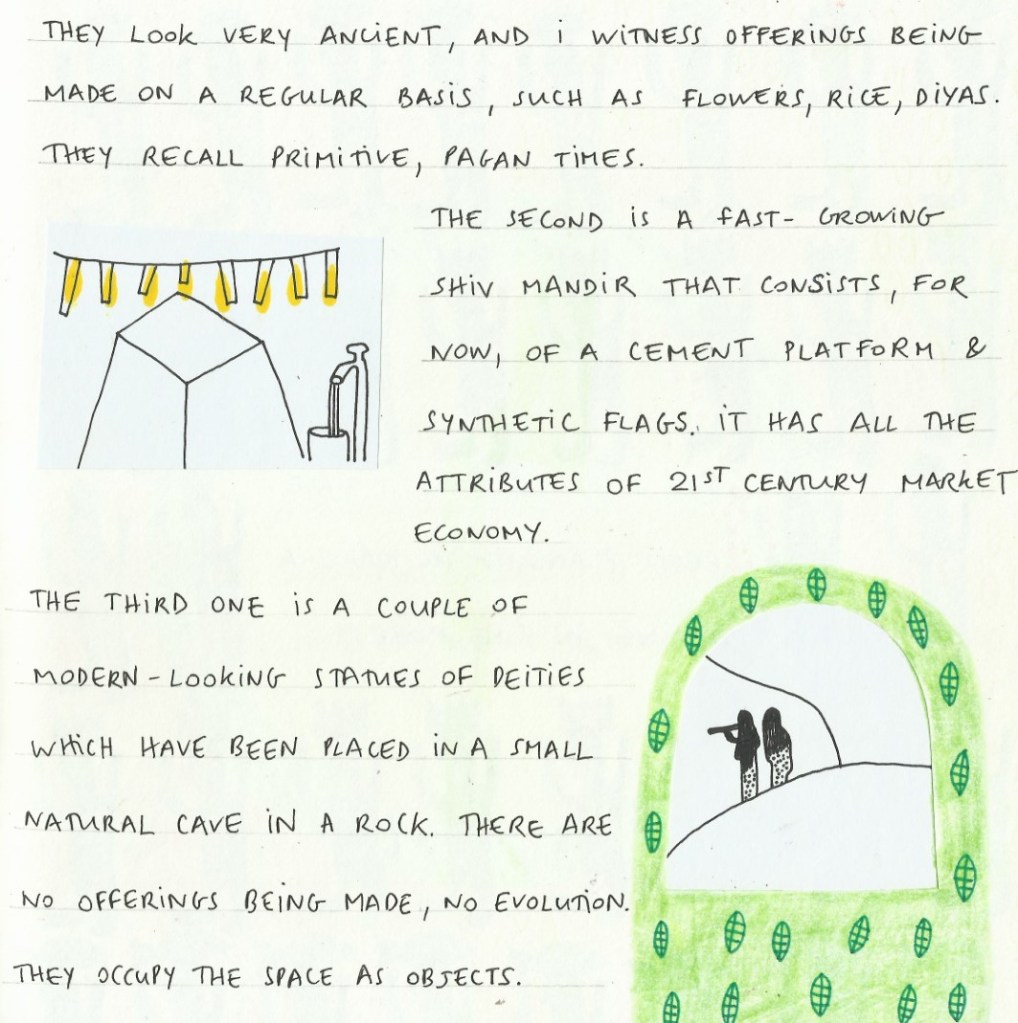 THEY LOOK VERY ANCIENT, AND i WITNESS OFFERINGS BEING
MADE ON A REGULAR BASIS, SUCH AS FLOWERS, RICE, DIYAS.
THEY RECALL PRIMITIVE, PAGAN TIMES.
THE SECOND IS A FAST-GROWING
SHIV MANDIR THAT CONSISTS, FOR
NOW, OF A CEMENT PLATFORM &
SYNTHETIC FLAGS. IT HAS ALL THE
ATTRIBUTES OF 21ST CENTURY MARKET
ECONOMY.
THE THIRD ONE IS A COUPLE OF
MODERN-LOOKING STATUES OF DEITIES
WHICH HAVE BEEN PLACED IN A SMALL
NATURAL CAVE IN A ROCK. THERE ARE
NO OFFERINGS BEING MADE, NO EVOLUTION.
THEY OCCUPY THE SPACE AS OBJECTS.